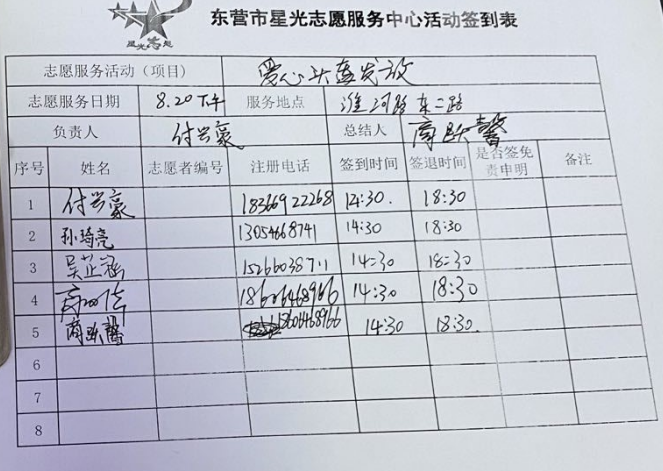 星光志愿
东营市星光志愿服务中心活动签到表
志愿服务活动（项目） 爱心头盔发放
志愿服务日期 8.20下午 服务地点 淮河路东二路
负责人 付兴豪 总结人 商跃馨
序号 姓名 志愿者编号 注册电话 签到时间 签退时间 是否签免责申明 备注
1 付兴豪 18366922268 14:30. 18:30
2 孙琦亮 13054668741 14:30 18:30
3 吴芷涵 15266038711 14:30 18:30
4 18606468966 14:30 18:30
5 商跃馨 13606468966 14:30 18:30.
6
7
8